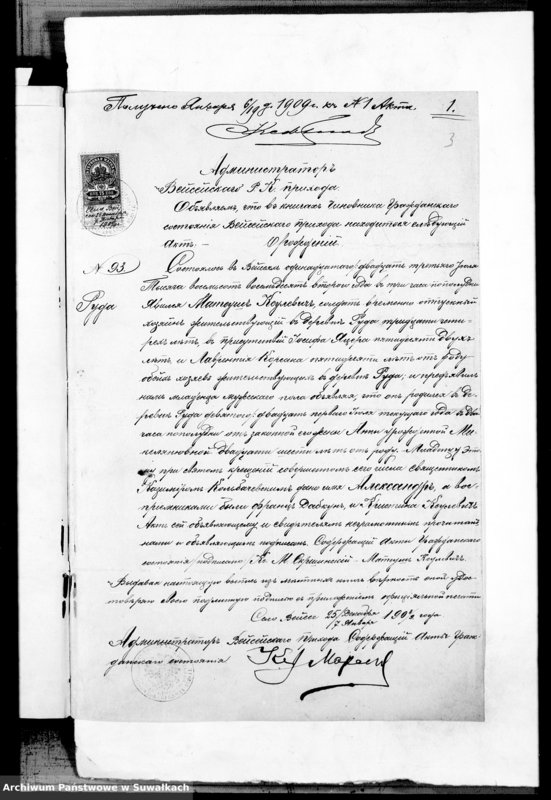 Получено Января 6/19 д. 1909 г. къ № 1 Акта. 1.
3
Администраторъ
Вейсейскаго Р. К. прихода.
Объявляетъ, что въ книгахъ Чиновника Гражданскаго
состоянія Вейсейскаго прихода находится слѣдующій
Актъ. — О рожденіи.
№ 93
Руда
Состоялось въ Вейсеи одинадцатаго/двадцать третьяго Іюля
Тысяча восемьсотъ восемьдесятъ второго года въ три часа пополудни
Явился Матеушъ Козлевичъ, солдатъ временно отпускный
хозяинъ жительствующій въ деревнѣ Руда тридцати четы-
рехъ лѣтъ, въ присутствіи Іосифа пятидесяти двухъ
лѣтъ и Лаврентія пятидесяти лѣтъ отъ роду
обоихъ хозяевъ жительствующихъ въ деревнѣ Руда, и предъявилъ
намъ младенца мужескаго пола объявляя, что онъ родился въ де-
ревнѣ Руда девятаго/двадцать перваго Іюля текущаго года въ два
часа пополудни отъ законной его жены Анны урожденной
двадцати шести лѣтъ отъ роду. Младенцу Это-
му при святомъ крещеніи совершенномъ сего числа священникомъ
Казимиромъ дано имя Александръ, а вос-
пріемниками были Францъ и Кристина Козлевичъ
Актъ сей объявляющему и свидѣтелямъ неграмотнымъ прочитанъ
нами и объявляющимъ подписанъ. Содержащій Акты Гражданскаго
состоянія /подписано/ Кс. М. Матеушъ Козлевичъ.
Выдавая настоящую выпись изъ метрическихъ книгъ вѣрность оной удос-
товѣряю моею подписью съ приложеніемъ оффиціальной печати
Село Вейсее 25 Декабря/7 Января 190 года
Администраторъ Вейсейскаго прихода Содержащій Акты Граж-
данскаго состоянія
Archiwum Państwowe w Suwałkach